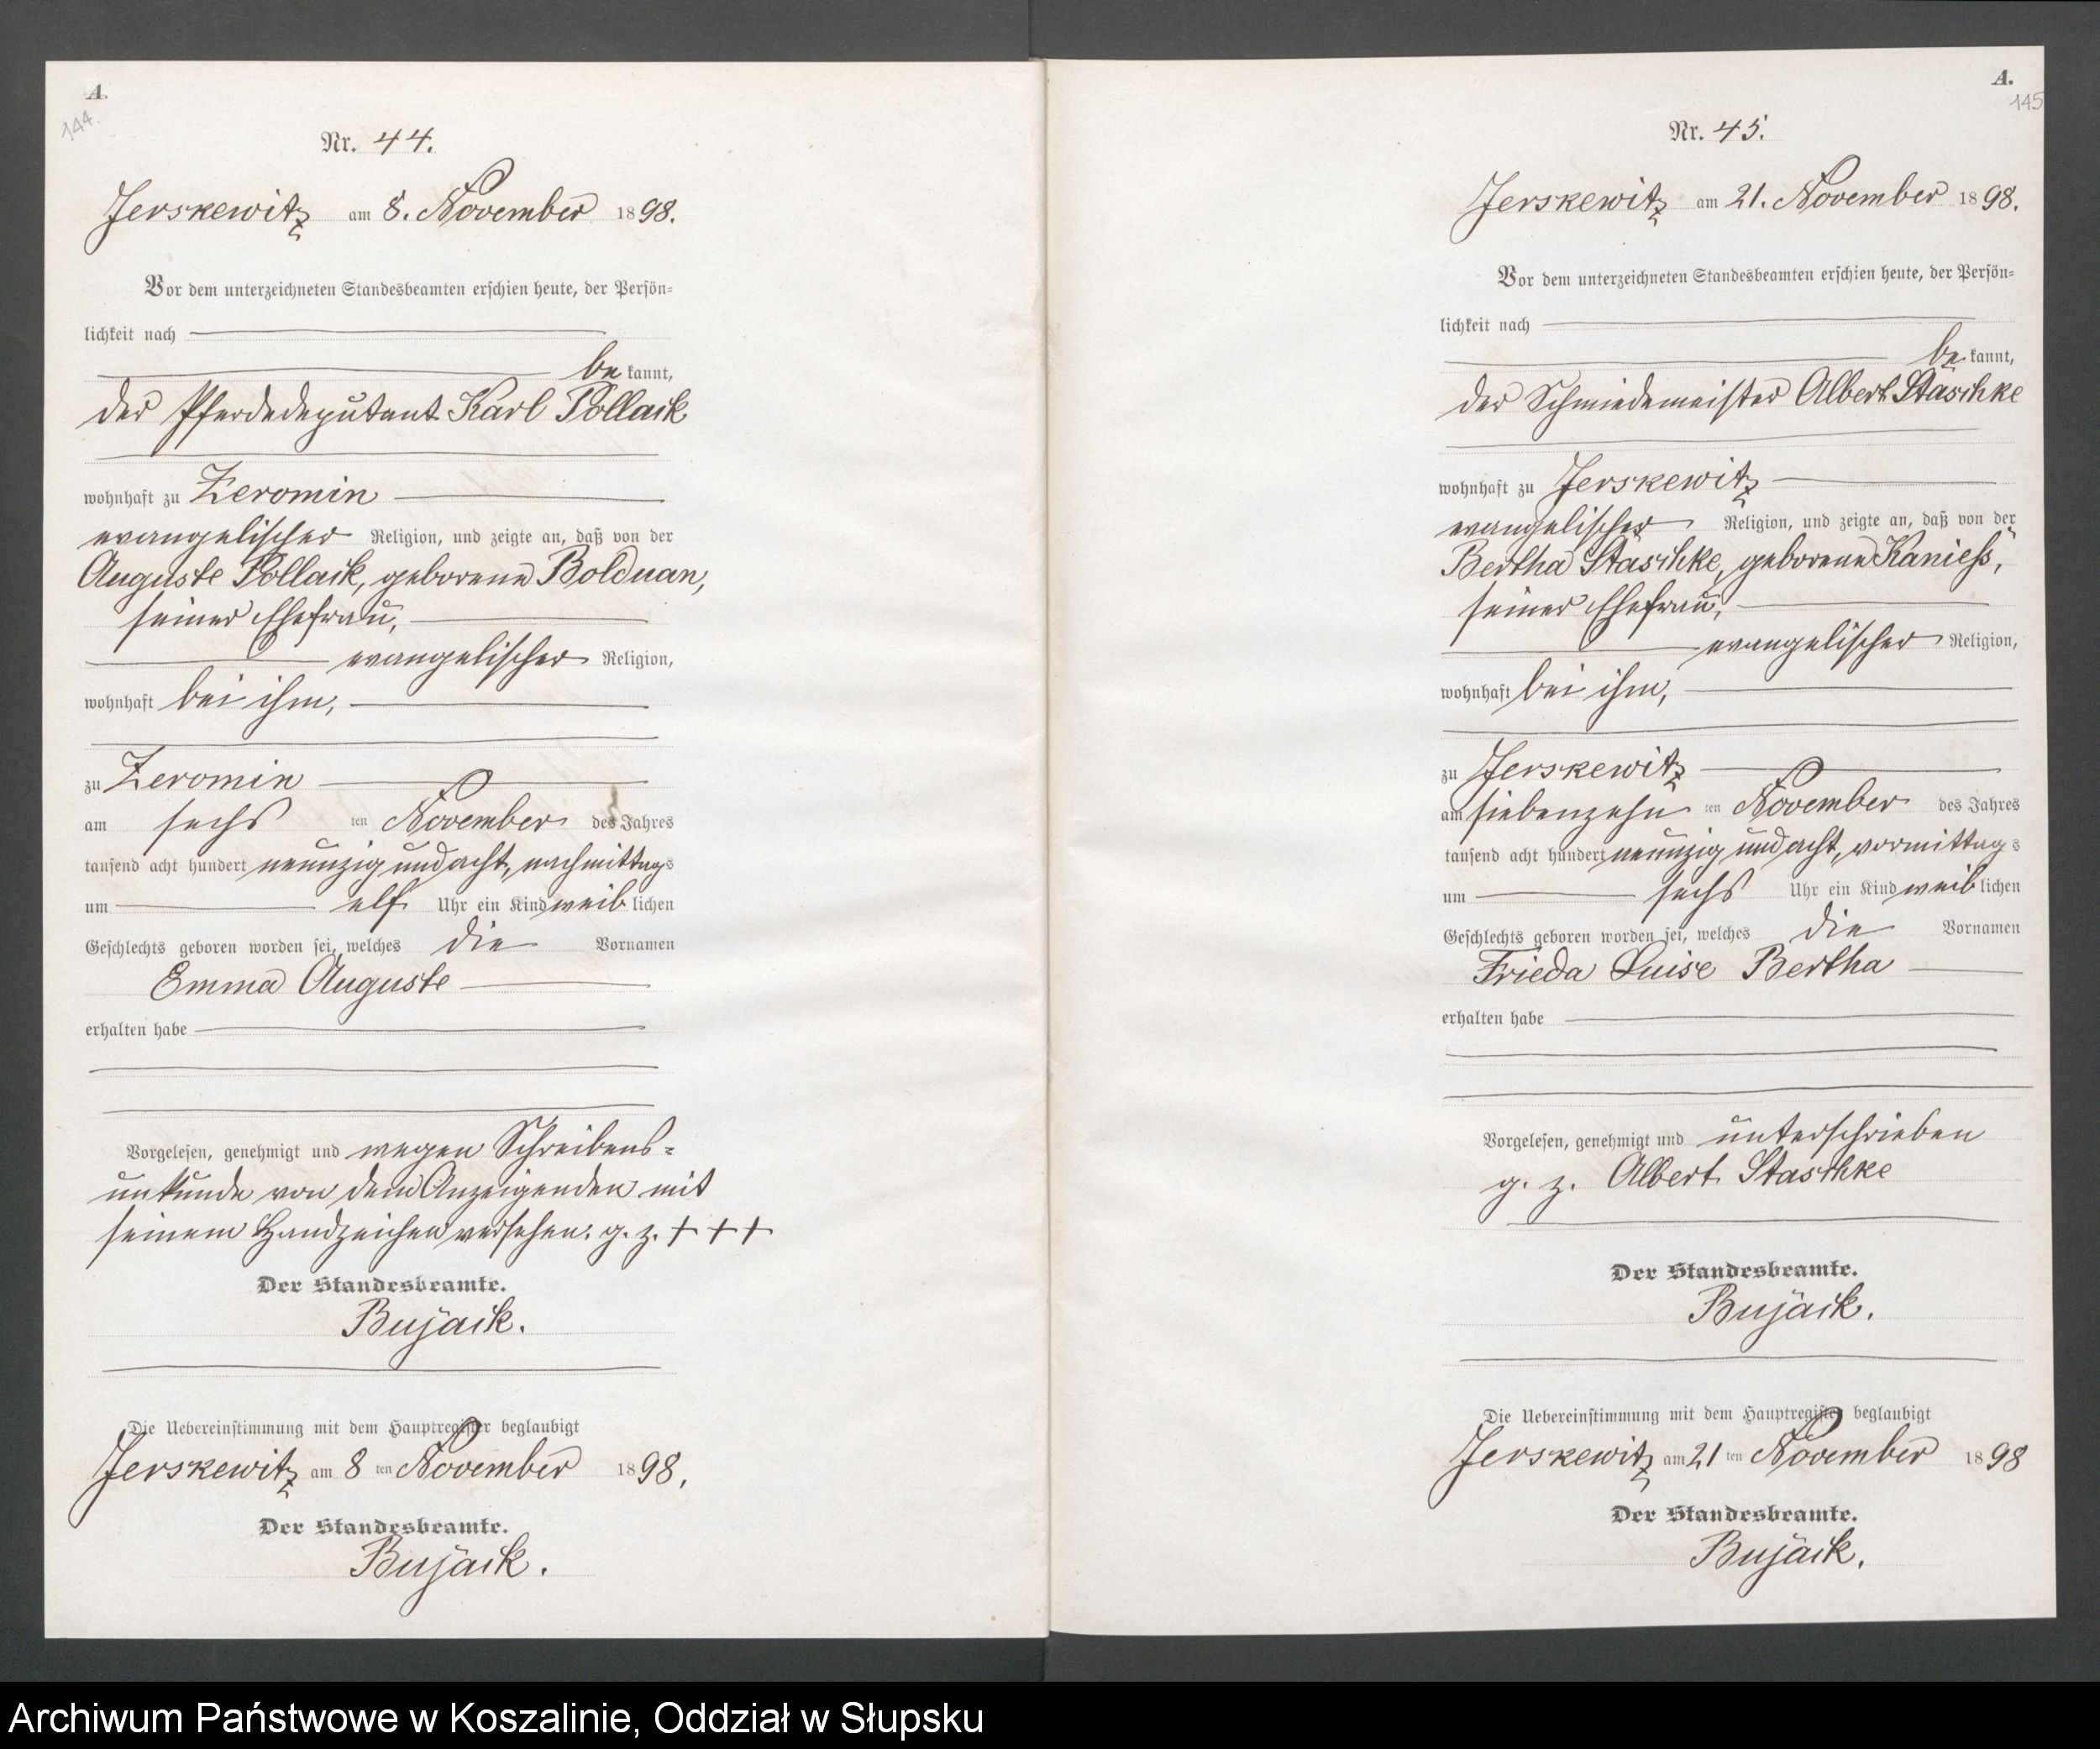 A.
144.
Nr. 44.
Jerskewitz am 8. November 1898.
Vor dem unterzeichneten Standesbeamten erschien heute, der Persön-
lichkeit nach
be kannt,
der Pferdedeputant Karl Pollack
wohnhaft zu Zeromin
evangelischer Religion, und zeigte an, daß von der
Auguste Pollack, geborene Bolduan,
seiner Ehefrau,
evangelischer Religion,
wohnhaft bei ihm,
zu Zeromin
am sechs ten November des Jahres
tausend acht hundert neunzig und acht, nachmittags
um elf Uhr ein Kind weiblichen
Geschlechts geboren worden sei, welches die Vornamen
Emma Auguste
erhalten habe
Vorgelesen, genehmigt und wegen Schreibens-
unkunde von dem Anzeigenden mit
seinem Handzeichen versehen. g. z. + + +
Der Standesbeamte.
Bujack.
Die Uebereinstimmung mit dem Hauptregister beglaubigt
Jerskewitz am 8 ten November 1898.
Der Standesbeamte.
Bujack.
A.
145
Nr. 45.
Jerskewitz am 21. November 1898.
Vor dem unterzeichneten Standesbeamten erschien heute, der Persön-
lichkeit nach
be kannt,
der Schmiedemeister Albert Staschke
wohnhaft zu Jerskewitz
evangelischer Religion, und zeigte an, daß von der
Bertha Staschke, geborene Kaniess,
seiner Ehefrau,
evangelischer Religion,
wohnhaft bei ihm,
zu Jerskewitz
am siebenzehn ten November des Jahres
tausend acht hundert neunzig und acht, vormittags
um sechs Uhr ein Kind weiblichen
Geschlechts geboren worden sei, welches die Vornamen
Frieda Luise Bertha
erhalten habe
Vorgelesen, genehmigt und unterschrieben
g. z. Albert Staschke
Der Standesbeamte.
Bujack.
Die Uebereinstimmung mit dem Hauptregister beglaubigt
Jerskewitz am 21 ten November 1898
Der Standesbeamte.
Bujack.
Archiwum Państwowe w Koszalinie, Oddział w Słupsku